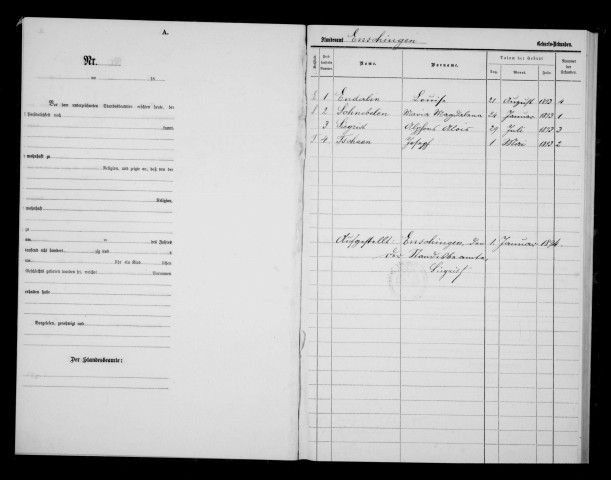 A.
Nr.
Vor dem unterzeichneten Standesbeamten erschien heute, der
Persönlichkeit nach
kannt,
wohnhaft zu
Religion, und zeigte an, daß von der
Religion,
wohnhaft
zu
am ten des Jahres
tausend acht hundert zig und
um Uhr ein Kind lichen
Geschlechts geboren worden sei, welches Vornamen
erhalten habe
Vorgelesen, genehmigt und
Der Standesbeamte:
Standesamt Enschingen Geburts-Urkunden.
Name. Vorname. Datum der Geburt
Tag. Monat. Jahr.
1 Endalen Louise 21 August 1893 4
2 Schnebelen Maria Magdalena 24 Januar 1893 1
3 Alphons Alois 29 Juli 1893 3
4 Joseph 1 Mai 1893 2
Aufgestellt: Enschingen, den 1. Januar 1894
Der Standesbeamte,